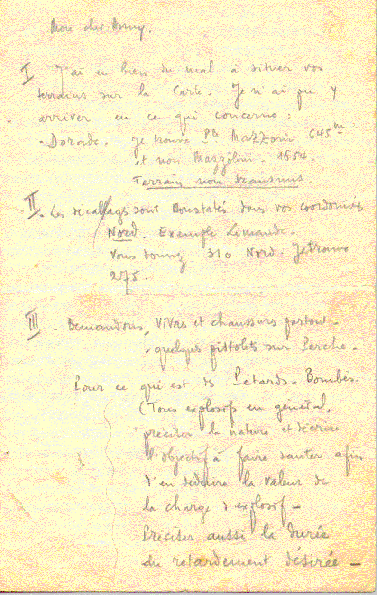 Mon cher
I J'ai eu bien du mal à situer vos
terrains sur la Carte. Je n'ai pu y
arriver en ce qui concerne :
- Dorade. Je trouve Mazzoni 645 m
et non Mazzolini. 1554.
Terrain non
II. Les décallages sont constatés dans vos coordonnées
Nord. Exemple Limande.
Vous donnez 310 Nord. Je trouve
275.
III. Demandons, vivres et chaussures partout.
- quelques pistolets sur Perche.
Pour ce qui est des Pétards. Bombes.
(Tous explosifs en général.
préciser la nature et décrire
l'objectif à faire sauter afin
d'en déduire la valeur de
la charge d'explosif -
Préciser aussi la durée
du retardement désirée -